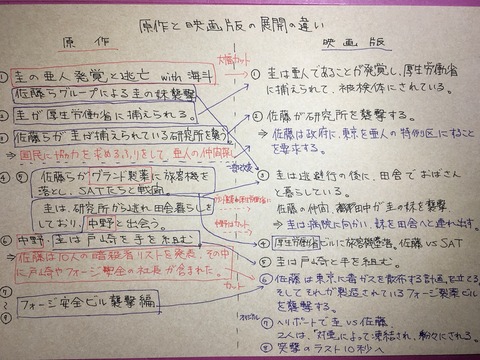 原作と映画版の展開の違い
原作
① 圭の亜人発覚と逃亡 with 海斗
佐藤らグループによる圭の妹襲撃
② 圭が厚生労働省に捕えられる。
③ 佐藤らが圭が捕えられている研究所を襲う
⇒ 国民に協力を求めるふりをして、亜人の仲間探し
④⑤ 佐藤らがグランド製薬に旅客機を
落とし、SATたちと戦闘
圭は、研究所から逃れ田舎暮らしを
しており、中野と出会う。
⑥ 中野・圭は戸崎と手を組む
⇒佐藤は10人の暗殺者リストを発表、その中
に戸崎やフォージ安全の社長が含まれた。
⑦
〜
⑨ フォージ安全ビル襲撃編
大幅カット
一部改変
中野はカット
カット
オリジナル
映画版
① 圭は亜人であることが発覚し、厚生労働省
に捕えられて、被検体にされている。
② 佐藤が研究所を襲撃する。
⇒佐藤は政府に、東京を亜人の特例区にすること
を要求する。
③ 圭は逃避行の後に、田舎でおばさん
と暮らしている。
佐藤の仲間、田中が圭の妹を襲撃
⇒圭は病院に向かい、妹を田舎へと連れ出す。
④ 厚生労働省ビルに旅客機墜落、佐藤 vs SAT
⑤ 圭は戸崎と手を組む
⑥ 佐藤は東京に毒ガスを散布する計画を立てる。
そしてそれが製造されているフォージ製薬ビル
を襲撃する。
⑦ ヘリポートで圭 vs 佐藤
2人は、"対亜"によって凍結され、粉々にされる。
⑧ 突撃のラスト10秒へ